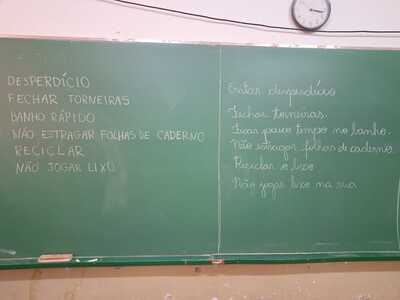 DESPERDÍCIO
FECHAR TORNEIRAS
BANHO RÁPIDO
NÃO ESTRAGAR FOLHAS DE CADERNO
RECICLAR
NÃO JOGAR LIXO
Evitar desperdício
Fechar torneiras.
Ficar pouco tempo no banho.
Não estragar folhas de caderno
Reciclar o lixo
Não jogar lixo na rua